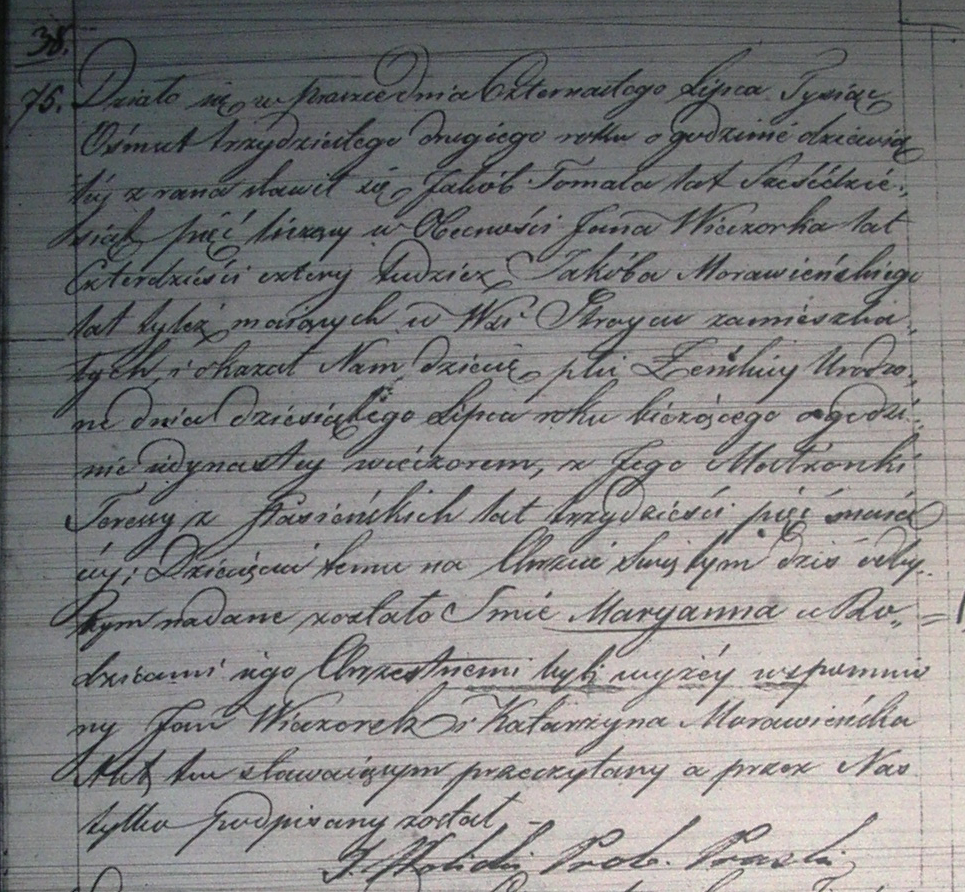 38.
75. Działo się w Praszce dnia Czternastego Lipca Tysiąc
Ośmset trzydziestego drugiego roku o godzinie dziewią
tey z rana stawił się Jakób Tomala lat Sześćdzie„
siąt pięć liczący w Obecności Jana Wieczorka lat
Czterdzieści cztery tudzież Jakóba Morawieńskiego
lat tyleż maiących w Wsi Stroycu zamieszka„
łych, i okazał Nam dziecię płci Żeńskiey Urodzo„
ne dnia dziesiątego Lipca roku bieżącego o godzi„
nie iedynastey wieczorem, z Jego Małżonki
Teressy z Stasieńskich lat trzydzieści pięć maią
cey; Dziecięciu temu na Chrzcie Swiętym dziś odby„
tym nadane zostało Jmie Maryanna a Ro„
dzicami iego Chrzestnemi byli wyżey wspomnio
ny Jan Wieczorek i Katarzyna Morawieńska
Akt ten stawaiącym przeczytany a przez Nas
tylko podpisany został
Prob. Praszki